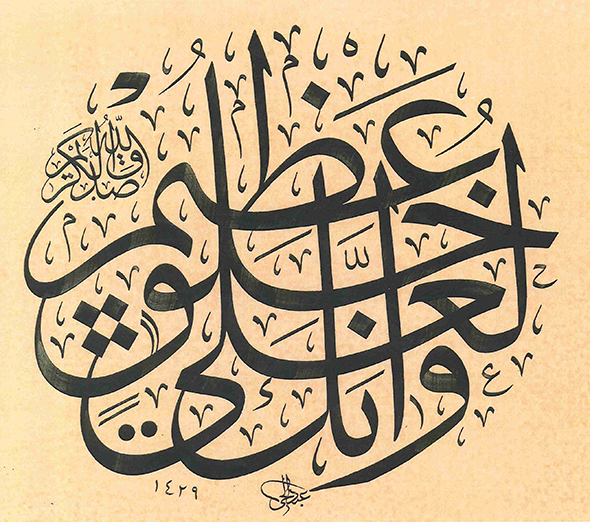 وَإِنَّكَ لَعَلَىٰ خُلُقٍ عَظِيمٍ
صدق الله الكريم
١٤٢٩